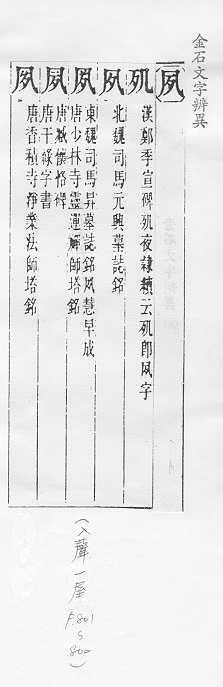 金石文字辨異
夙
丮 漢鄭季宣碑丮夜隸續云丮即夙字
夙 北魏司馬元興墓誌銘
夙 東魏司馬昇墓誌銘夙慧早成
唐少林寺靈運禪師塔銘
夙 唐臧懷恪碑
唐干祿字書
夙 唐香積寺淨業法師塔銘
(入聲一屋 P.801 S 800)